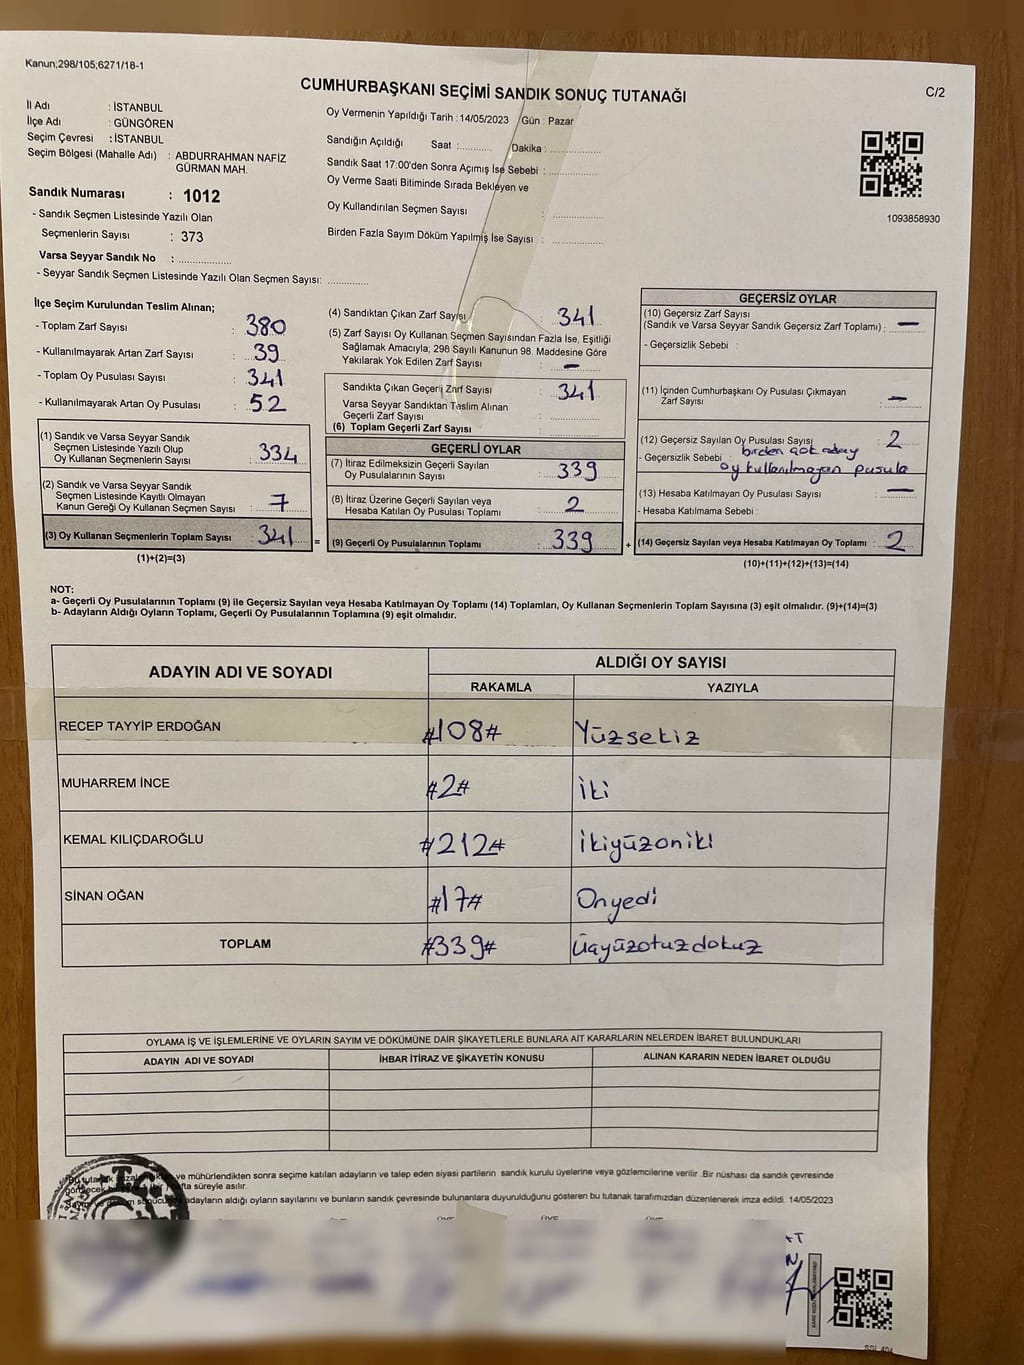 Kanun;298/105;6271/18-1
C/2
CUMHURBAŞKANI SEÇİMİ SANDIK SONUÇ TUTANAĞI
İl Adı : İSTANBUL
İlçe Adı : GÜNGÖREN
Seçim Çevresi : İSTANBUL
Seçim Bölgesi (Mahalle Adı) : ABDURRAHMAN NAFİZ
GÜRMAN MAH.
Sandık Numarası : 1012
- Sandık Seçmen Listesinde Yazılı Olan
Seçmenlerin Sayısı : 373
Varsa Seyyar Sandık No :
- Seyyar Sandık Seçmen Listesinde Yazılı Olan Seçmen Sayısı:
Oy Vermenin Yapıldığı Tarih : 14/05/2023 Gün : Pazar
Sandığın Açıldığı Saat : Dakika :
Sandık Saat 17:00'den Sonra Açımış İse Sebebi :
Oy Verme Saati Bitiminde Sırada Bekleyen ve
Oy Kullandırılan Seçmen Sayısı :
Birden Fazla Sayım Döküm Yapılmış İse Sayısı :
1093858930
İlçe Seçim Kurulundan Teslim Alınan;
- Toplam Zarf Sayısı : 380
- Kullanılmayarak Artan Zarf Sayısı : 39
- Toplam Oy Pusulası Sayısı : 341
- Kullanılmayarak Artan Oy Pusulası : 52
(1) Sandık ve Varsa Seyyar Sandık
Seçmen Listesinde Yazılı Olup
Oy Kullanan Seçmenlerin Sayısı : 334
(2) Sandık ve Varsa Seyyar Sandık
Seçmen Listesinde Kayıtlı Olmayan
Kanun Gereği Oy Kullanan Seçmen Sayısı : 7
(3) Oy Kullanan Seçmenlerin Toplam Sayısı : 341 =
(1)+(2)=(3)
(4) Sandıktan Çıkan Zarf Sayısı : 341
(5) Zarf Sayısı Oy Kullanan Seçmen Sayısından Fazla İse, Eşitliği
Sağlamak Amacıyla; 298 Sayılı Kanunun 98. Maddesine Göre
Yakılarak Yok Edilen Zarf Sayısı : —
Sandıkta Çıkan Geçerli Zarf Sayısı : 341
Varsa Seyyar Sandıktan Teslim Alınan
Geçerli Zarf Sayısı :
(6) Toplam Geçerli Zarf Sayısı :
GEÇERLİ OYLAR
(7) İtiraz Edilmeksizin Geçerli Sayılan
Oy Pusulalarının Sayısı : 339
(8) İtiraz Üzerine Geçerli Sayılan veya
Hesaba Katılan Oy Pusulası Toplamı : 2
(9) Geçerli Oy Pusulalarının Toplamı : 339 +
GEÇERSİZ OYLAR
(10) Geçersiz Zarf Sayısı
(Sandık ve Varsa Seyyar Sandık Geçersiz Zarf Toplamı) : —
- Geçersizlik Sebebi :
(11) İçinden Cumhurbaşkanı Oy Pusulası Çıkmayan
Zarf Sayısı : —
(12) Geçersiz Sayılan Oy Pusulası Sayısı : 2
- Geçersizlik Sebebi : birden çok aday
oy kullanılmayan pusula
(13) Hesaba Katılmayan Oy Pusulası Sayısı : —
- Hesaba Katılmama Sebebi :
(14) Geçersiz Sayılan veya Hesaba Katılmayan Oy Toplamı : 2
(10)+(11)+(12)+(13)=(14)
NOT:
a- Geçerli Oy Pusulalarının Toplamı (9) ile Geçersiz Sayılan veya Hesaba Katılmayan Oy Toplamı (14) Toplamları, Oy Kullanan Seçmenlerin Toplam Sayısına (3) eşit olmalıdır. (9)+(14)=(3)
b- Adayların Aldığı Oyların Toplamı, Geçerli Oy Pusulalarının Toplamına (9) eşit olmalıdır.
ADAYIN ADI VE SOYADI ALDIĞI OY SAYISI
RAKAMLA YAZIYLA
RECEP TAYYİP ERDOĞAN #108# Yüzsekiz
MUHARREM İNCE #2# İki
KEMAL KILIÇDAROĞLU #212# İkiyüzoniki
SİNAN OĞAN #17# Onyedi
TOPLAM #339# Üçyüzotuzdokuz
OYLAMA İŞ VE İŞLEMLERİNE VE OYLARIN SAYIM VE DÖKÜMÜNE DAİR ŞİKAYETLERLE BUNLARA AİT KARARLARIN NELERDEN İBARET BULUNDUKLARI
ADAYIN ADI VE SOYADI İHBAR İTİRAZ VE ŞİKAYETİN KONUSU ALINAN KARARIN NEDEN İBARET OLDUĞU
ve mühürlendikten sonra seçime katılan adayların ve talep eden siyasi partilerin sandık kurulu üyelerine veya gözlemcilerine verilir .Bir nüshası da sandık çevresinde
hafta süreyle asılır.
adayların aldığı oyların sayılarını ve bunların sandık çevresinde bulunanlara duyurulduğunu gösteren bu tutanak tarafımızdan düzenlenerek imza edildi. 14/05/2023